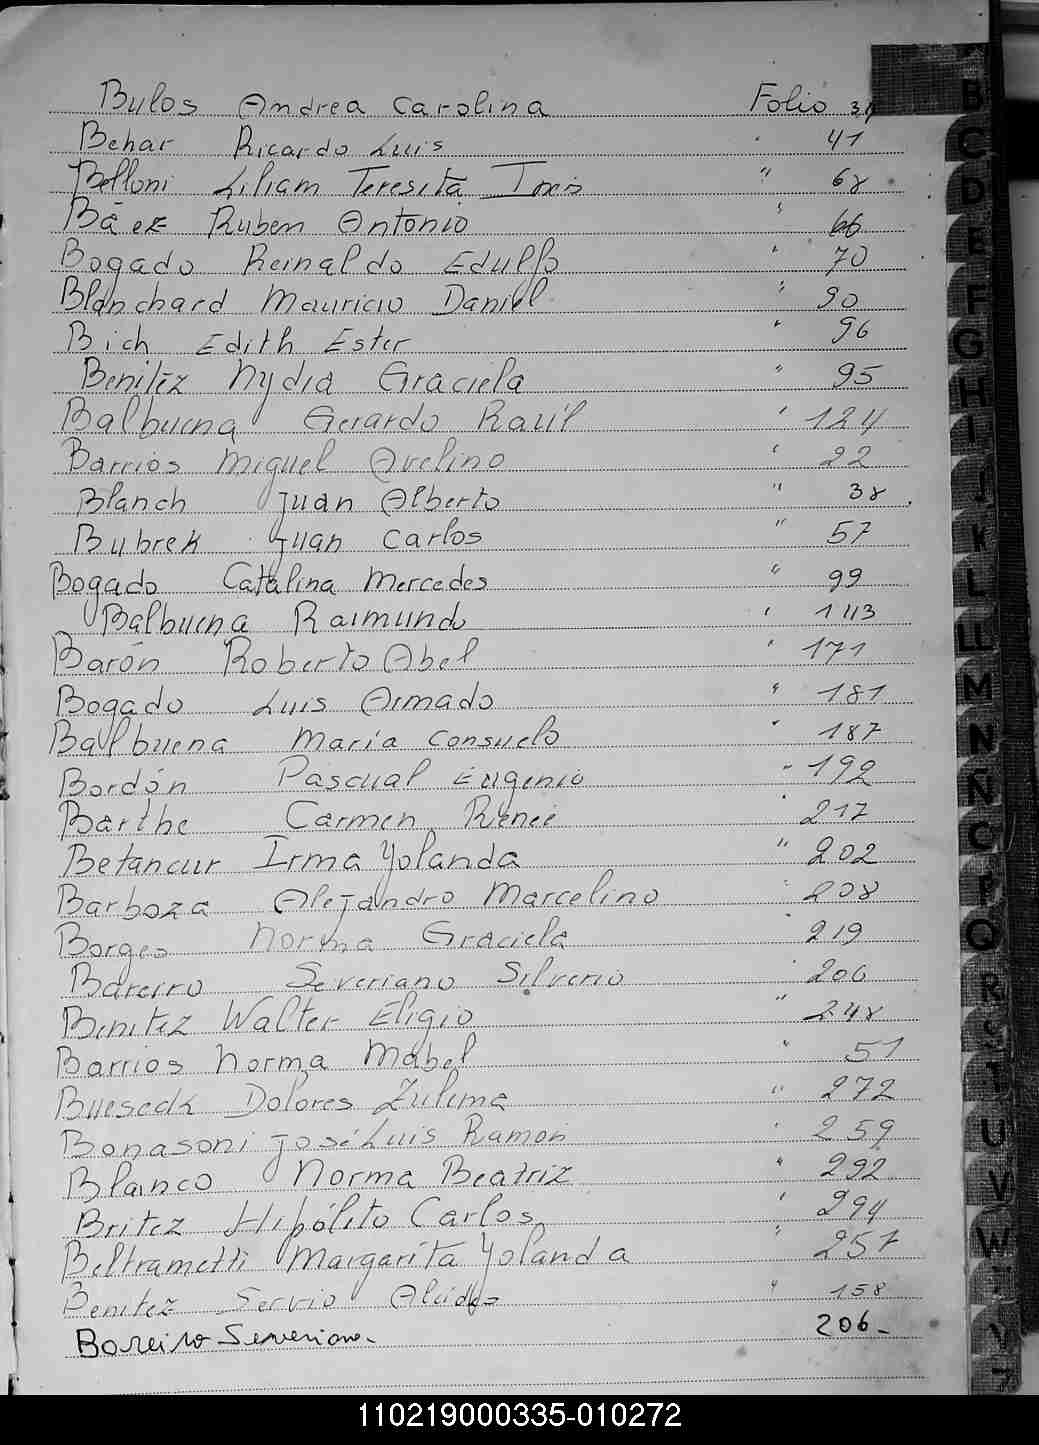 Bulos Andrea Carolina Folio 31
Behar Ricardo Luis " 41
Belloni Liliam Teresita Inés " 68
Báez Ruben Antonio " 66
Bogado Reinaldo Edulfo " 70
Blanchard Mauricio Daniel " 90
Bich Edith Ester " 96
Benitez Nydia Graciela " 95
Balbuena Gerardo Raúl " 124
Barrios Miguel Avelino " 22
Blanch Juan Alberto " 38
Bubrek Juan Carlos " 57
Bogado Catalina Mercedes " 99
Balbuena Raimundo " 143
Barón Roberto Abel " 171
Bogado Luis Armado " 181
Balbuena María Consuelo " 187
Bordón Pascual Eugenio " 192
Barthe Carmen Renée " 217
Betancur Irma Yolanda " 202
Barboza Alejandro Marcelino " 208
Borges Norma Graciela " 219
Bareiro Severiano Silverio " 206
Benitez Walter Eligio " 248
Barrios Norma Mabel " 51
Bueseck Dolores Zulema " 272
Bonasoni José Luis Ramón " 259
Blanco Norma Beatriz " 292
Britez Hipólito Carlos " 294
Beltrametti Margarita Yolanda " 257
Benitez Servio Alcides " 158
Bareiro Severiano. 206-
B
C
D
E
F
G
H
I
J
K
L
LL
M
N
Ñ
O
P
Q
R
S
T
U
V
W
Y
Z
110219000335-010272